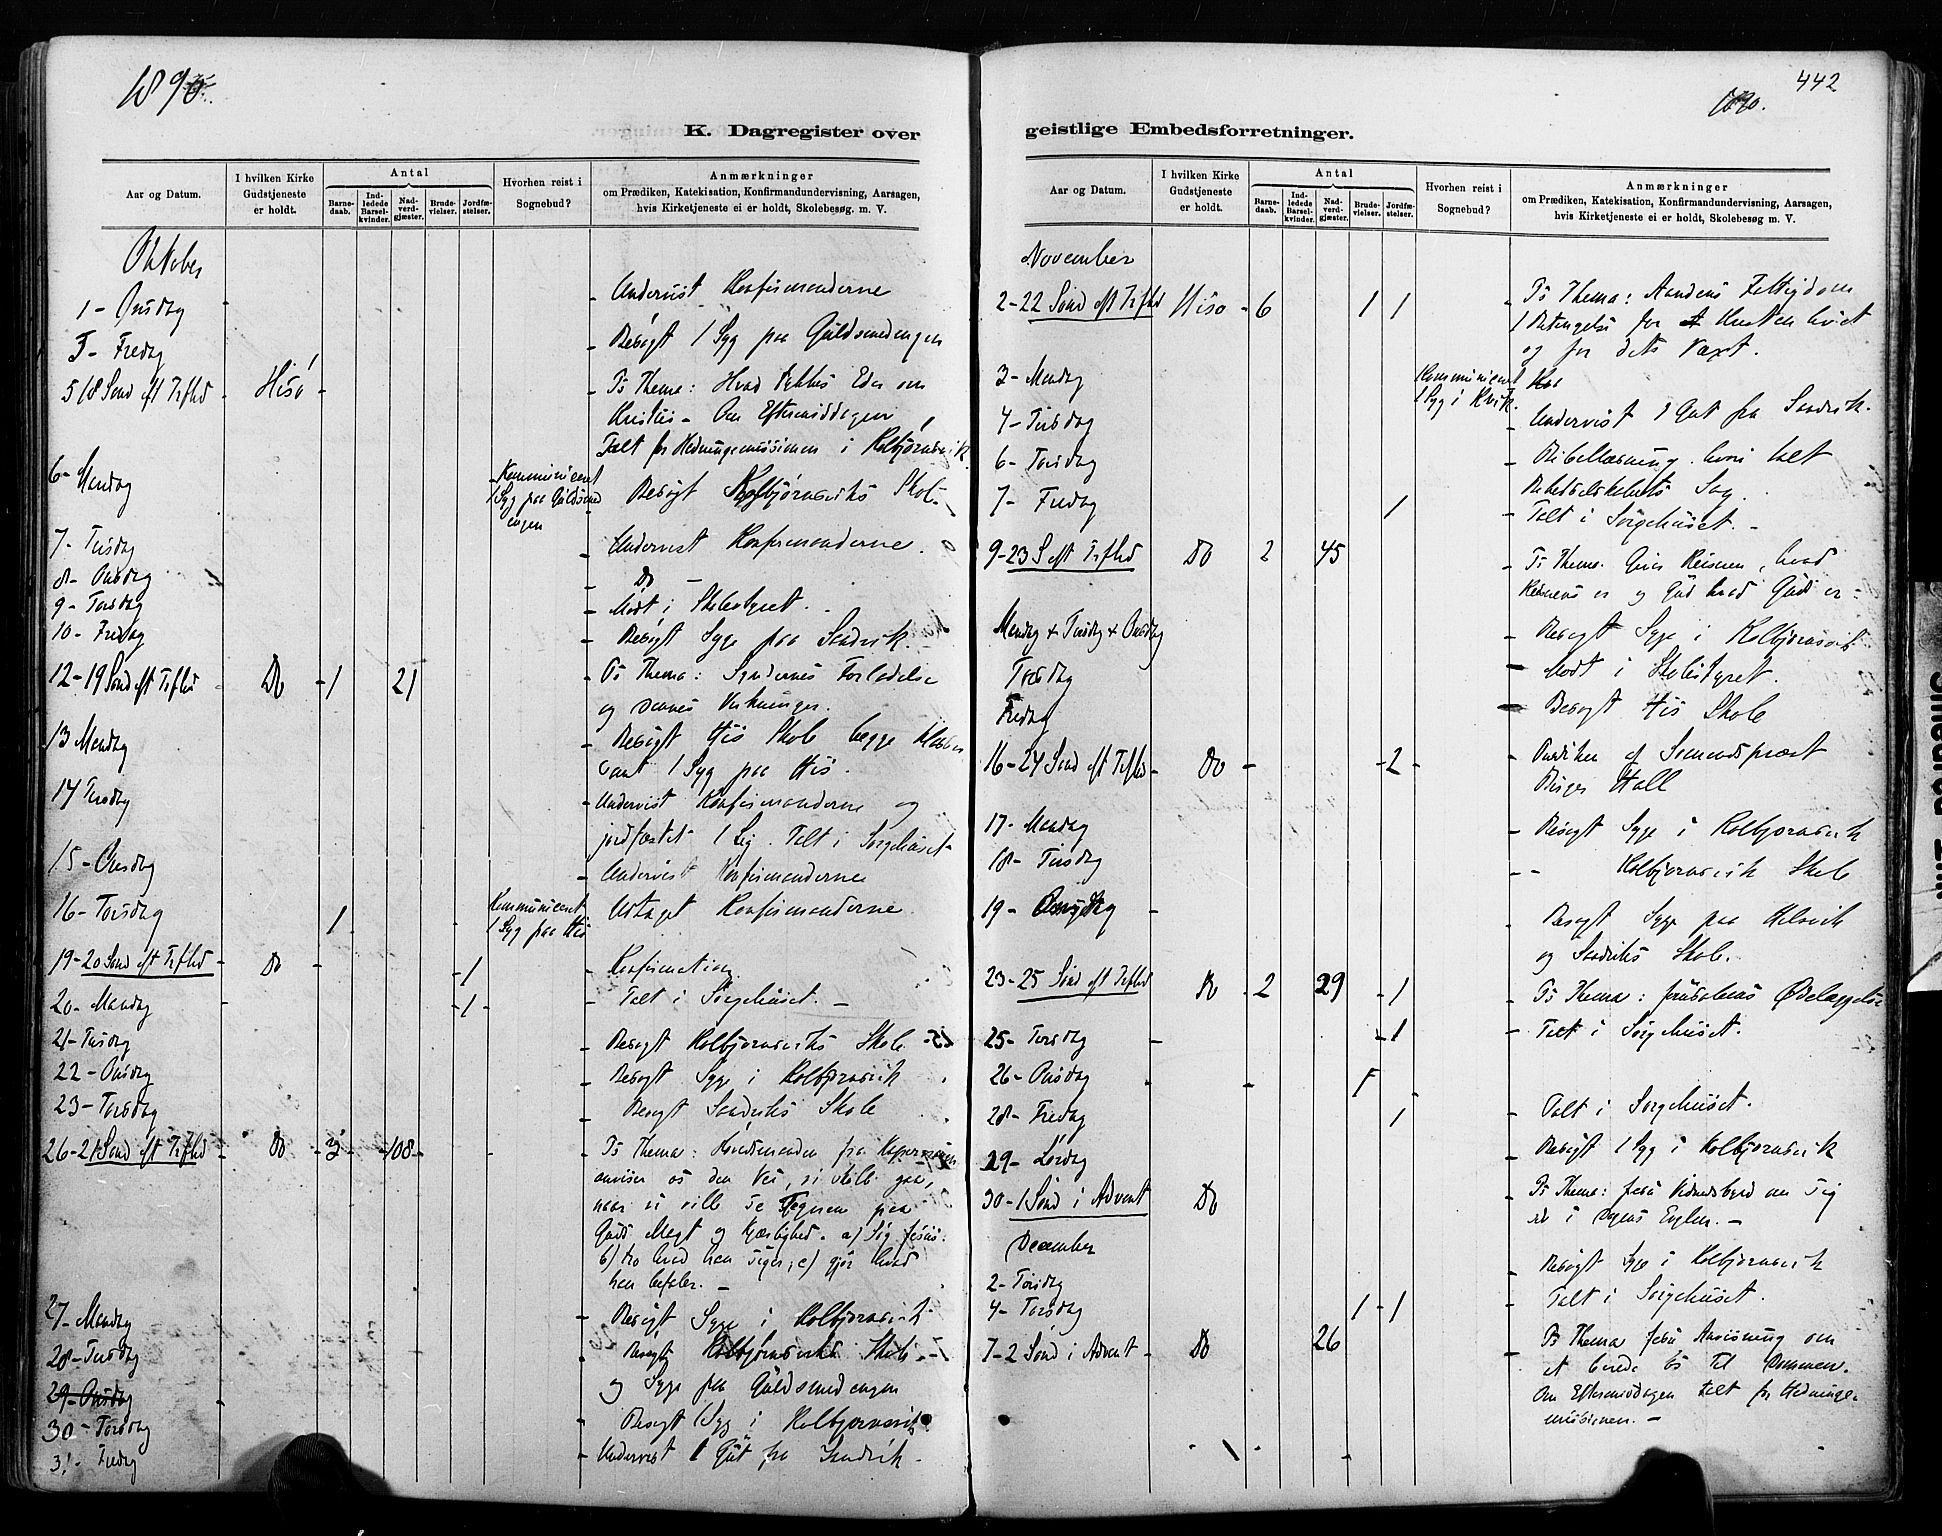 1890.
K. Dagregister over
Aar og Datum.
I hvilken Kirke Gudstjeneste er holdt.
Antal
Barne-daab.
Ind-ledede Barsel-kvinder.
Nad-verd-gjæster.
Brude-vielser.
Jordfæ-stelser.
Hvorhen reist i Sognebud?
Anmærkninger
om Prædiken, Katekisation, Konfirmandundervisning, Aarsagen,
hvis Kirketjeneste ei er holdt, Skolebesøg. m. V.
Oktober
1 - Onsdag - Undervist Konfirmanderne
3 - Fredag - Besøgt 1 Syg paa Guldsmedengen
5 18 Sond eft Trfhd - Hisø - Ps Thema: Hvad Eder om
Kristus - Om Eftermiddagen
Talt for Hedningemissionen i Kolbjørnsvik
6 - Mandag - Kommuniceret 1 Syg paa Guldsmedengen - Besøgt Kolbjørnsviks Skole
7 - Tirsdag - Undervist Konfirmanderne.
8 - Onsdag - Do -
9 - Torsdag - Mødt i Skolestyret.
10 - Fredag - Besøgt Syge paa Sandvik.
12 - 19 Sond eft Trfhd - Do - 1 - 21 - Ps Thema: Syndernes Forladelse
og dennes Virkninger.
13 Mandag - Besøgt His Skole begge Klasser
samt 1 Syg paa His.
14 Tirsdag - Undervist Konfirmanderne og
jordfæstet 1 Lig. Talt i Sørgehuset
15 - Onsdag - Undervist Konfirmanderne
16 - Torsdag - 1 - Kommuniceret 1 Syg paa His - Udtaget Konfirmanderne
19 - 20 Sond eft Trfhd - Do - 1 - Konfirmation
20 - Mandag - 1 - Talt i Sørgehuset. -
21 - Tirsdag - Besøgt Kolbjørnsviks Skole
22 - Onsdag - Besøgt Syge i Kolbjørnsvik
23 - Torsdag - Besøgt Sandviks Skole
26 - 21 Sond eft Trfhd - Do - 3 - 108 - Ps Thema: Høvdsmanden fra Kapernaum
anviser os den Vei, vi skulle gaa,
naar vi ville se Tegnene paa
Guds Magt og Kjærlighed. a) Jesus:
b) tro hvad han siger, c) gjør hvad
han befaler. -
27 - Mandag - Besøgt Syge i Kolbjørnsvik
28 - Tirsdag - Besøgt Kolbjørnsviks Skole
29 - Onsdag - og Syge paa Guldsmedengen
30 - Torsdag - Besøgt 1 Syg i Kolbjørnsvik
31 - Fredag - Undervist 1 Gut fra Sandvik.
442
1890.
geistlige Embedsforretninger.
Aar og Datum.
I hvilken Kirke Gudstjeneste er holdt.
Antal
Barne-daab.
Ind-ledede Barsel-kvinder.
Nad-verd-gjæster.
Brude-vielser.
Jordfæ-stelser.
Hvorhen reist i Sognebud?
Anmærkninger
om Prædiken, Katekisation, Konfirmandundervisning, Aarsagen,
hvis Kirketjeneste ei er holdt, Skolebesøg m. V.
November
2 - 22 Sond eft Trfhd - Hisø - 6 - 1 1 - Ps Thema: Aandens Fattigdom
1 Betingelse for
og for dets Vaxt.
3 - Mandag - Kommuniceret 1 Syg i
4 - Tirsdag - Undervist 1 Gut fra Sandvik.
6 - Torsdag - Bibellæsning. hvori talt
Sag.
7 - Fredag - 1 - Talt i Sørgehuset. -
9 - 23 S eft Trfhd - Do - 2 - 45 - Ps Thema. Giver Keiseren, hvad
Keiserens er og Gud hvad Guds er -
Mandag + Tirsdag + Onsdag - Besøgt Syge i Kolbjørnsvik
Torsdag - Mødt i Skolestyret.
Fredag - Besøgt His Skole
16 - 24 Sond eft Trfhd - Do - 2 - Prædiken af Sømandspræst
Birger Hall
17 - Mandag - Besøgt Syge i Kolbjørnsvik
18 - Tirsdag - - Kolbjørnsvik Skole
19 - Onsdag - Besøgt Syge paa Helvik
og Sandviks Skole.
23 - 25 Sond eft Trfhd - Do - 2 - 29 - 1 - Ps Thema: Jerusalems Ødelæggelse
25 - Torsdag - 1 - Talt i Sørgehuset.
26 - Onsdag
28 - Fredag - 1 - Talt i Sørgehuset.
29 - Lørdag - Besøgt 1 Syg i Kolbjørnsvik
30 - 1 Sond i Advent - Do - Ps Thema: Jesu Vidnesbyrd om sig
i Dagens Evglm. -
December
2 - Tirsdag - Besøgt Syge i Kolbjørnsvik
4 - Torsdag - 1 - 1 - Talt i Sørgehuset.
7 - 2 Sond i Advent - Do - 26 - Ps Thema Jesu Anvisning om
at berede os til Dommen.
Om Eftermiddagen talt for Hedninge-
missionen. -